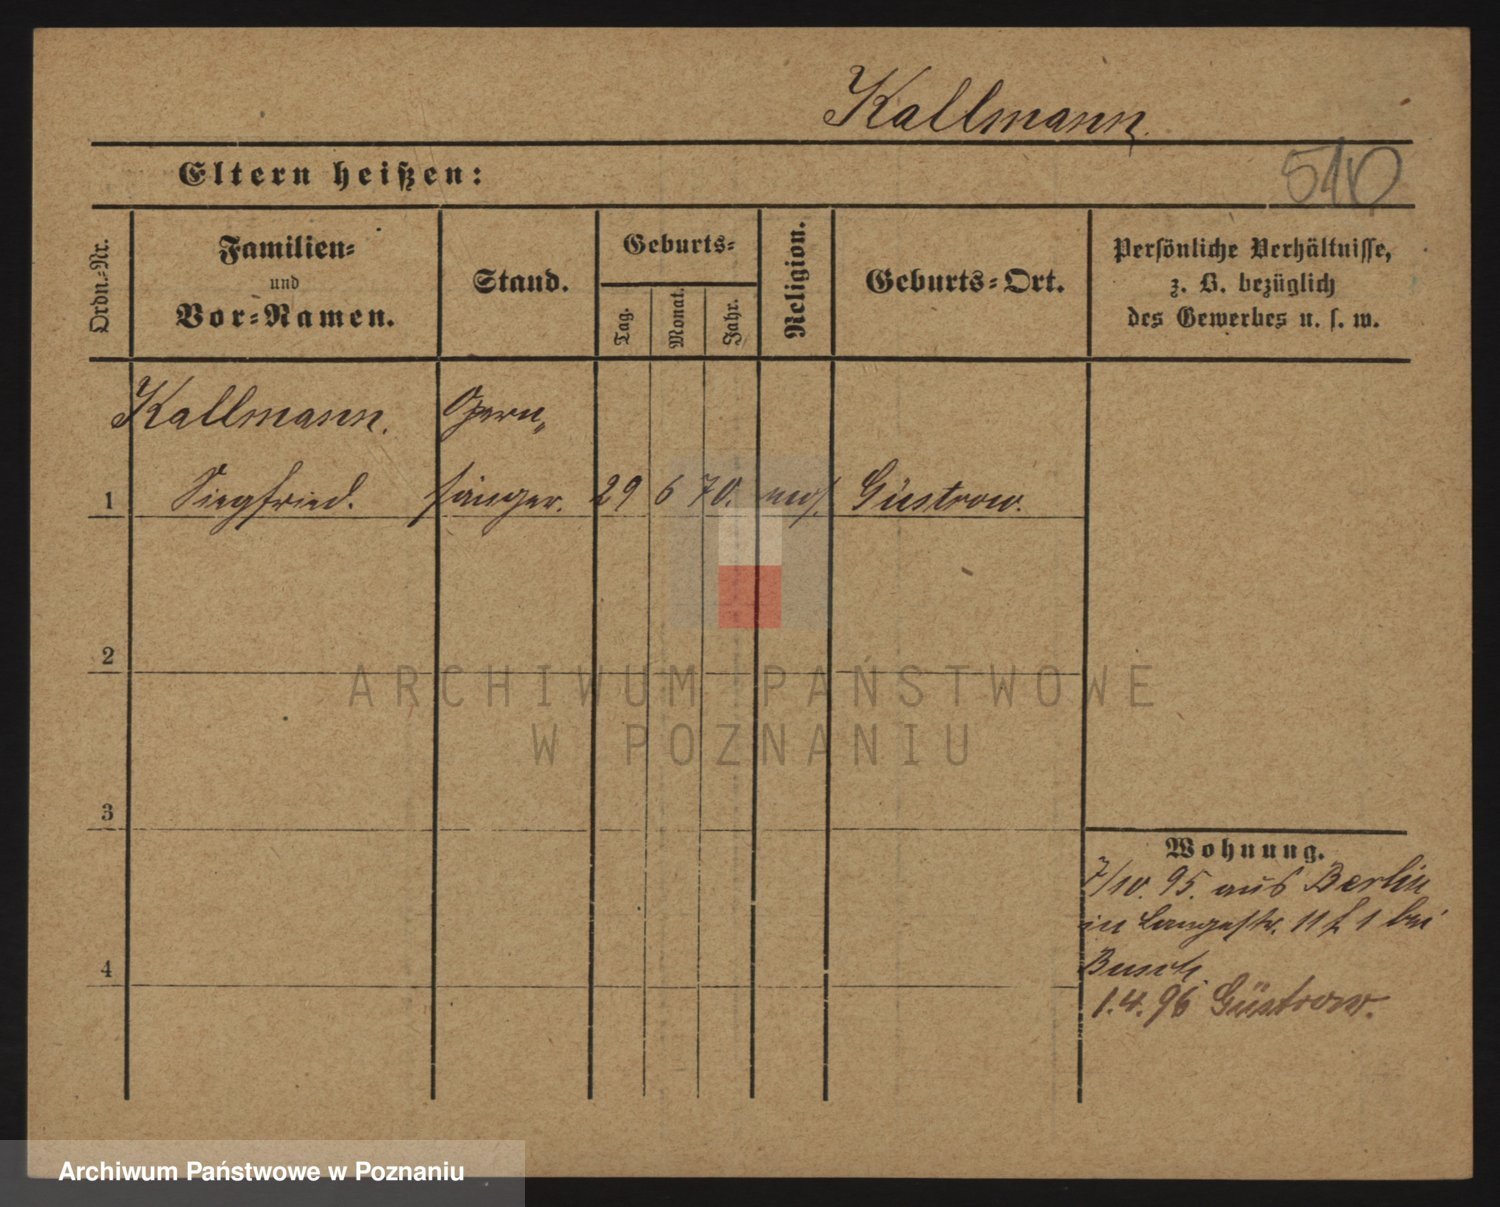 Kallmann.
510
Eltern heißen:
Ordn.-Nr.
Familien-
und
Vor-Namen.
Stand.
Geburts-
Tag.
Monat.
Jahr.
Religion.
Geburts-Ort.
Persönliche Verhältnisse,
z. B. bezüglich
des Gewerbes u. s. w.
Kallmann. Opern„
1 Siegfried. sänger. 29 6 70. mos. Güstrow.
2
3
4
Wohnung.
7/10. 95. aus Berlin
in Langestr. 11 1 bei
Busch.
1.4.96 Güstrow.
ARCHIWUM PAŃSTWOWE
W POZNANIU
Archiwum Państwowe w Poznaniu